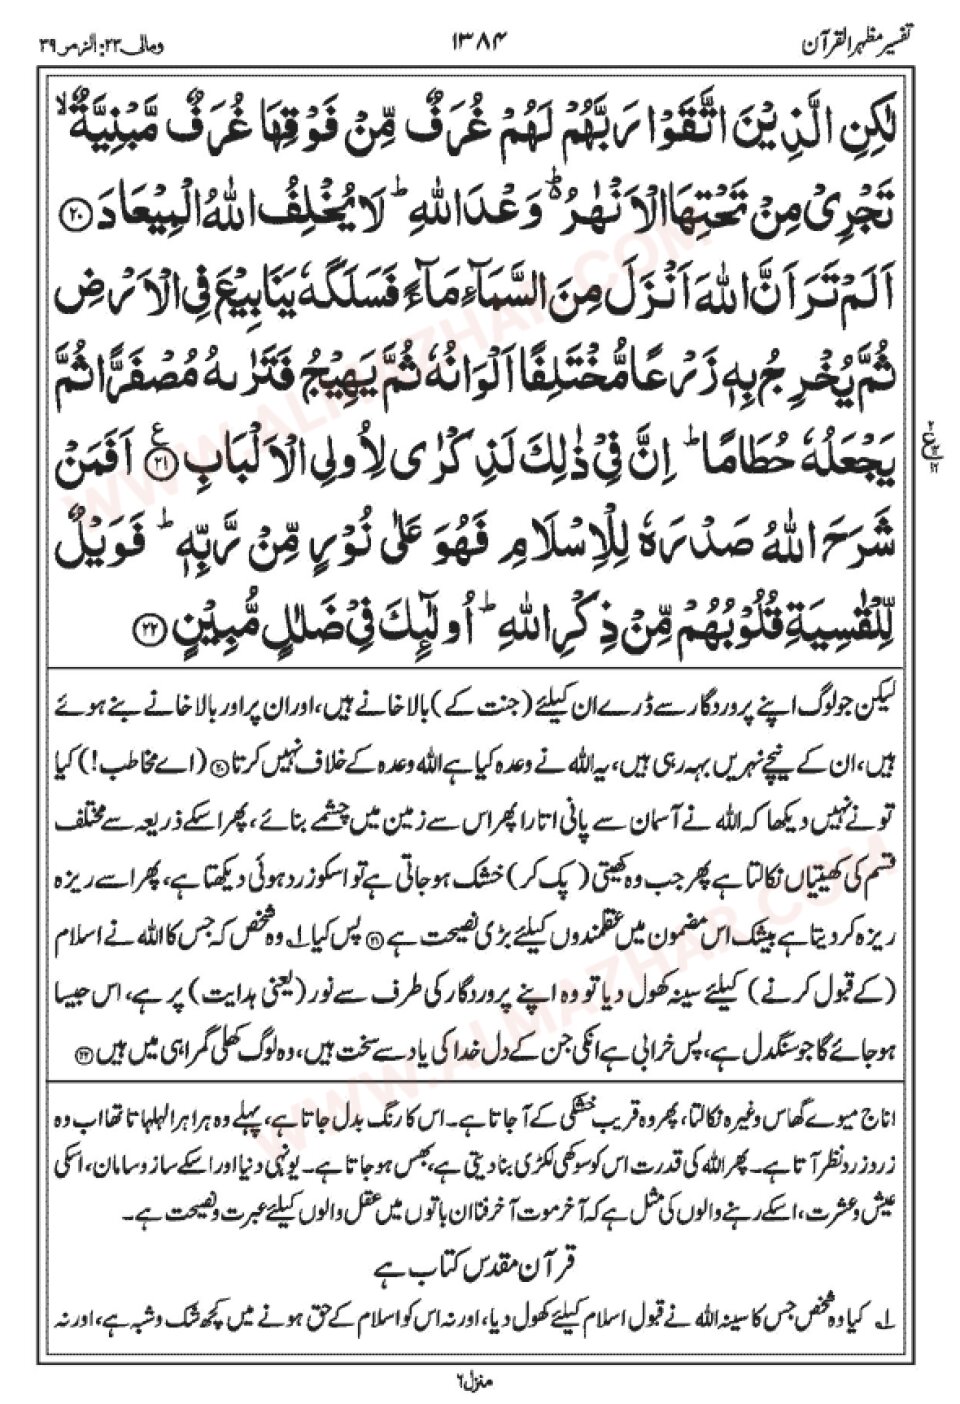 تفسیر مظہر القرآن ۱۳۸۴ ومالی ۲۳: الزمر ۳۹
لٰكِنِ الَّذِيْنَ اتَّقَوْا رَبَّهُمْ لَهُمْ غُرَفٌ مِّنْ فَوْقِهَا غُرَفٌ مَّبْنِيَّةٌ ۙ
تَجْرِيْ مِنْ تَحْتِهَا الْاَنْهٰرُ ۬ؕ وَعْدَ اللّٰهِ ؕ لَا يُخْلِفُ اللّٰهُ الْمِيْعَادَ ﴿۲۰﴾
اَلَمْ تَرَ اَنَّ اللّٰهَ اَنْزَلَ مِنَ السَّمَآءِ مَآءً فَسَلَكَهٗ يَنَابِيْعَ فِي الْاَرْضِ
ثُمَّ يُخْرِجُ بِهٖ زَرْعًا مُّخْتَلِفًا اَلْوَانُهٗ ثُمَّ يَهِيْجُ فَتَرٰىهُ مُصْفَرًّا ثُمَّ
يَجْعَلُهٗ حُطَامًا ؕ اِنَّ فِيْ ذٰلِكَ لَذِكْرٰى لِاُولِي الْاَلْبَابِ ﴿۲۱﴾ ع اَفَمَنْ
شَرَحَ اللّٰهُ صَدْرَهٗ لِلْاِسْلَامِ فَهُوَ عَلٰى نُوْرٍ مِّنْ رَّبِّهٖ ؕ فَوَيْلٌ
لِّلْقٰسِيَةِ قُلُوْبُهُمْ مِّنْ ذِكْرِ اللّٰهِ ؕ اُولٰٓئِكَ فِيْ ضَلٰلٍ مُّبِيْنٍ ﴿۲۲﴾
لیکن جو لوگ اپنے پروردگار سے ڈرے ان کیلئے (جنت کے) بالا خانے ہیں، اور ان پر اور بالا خانے بنے ہوئے
ہیں، ان کے نیچے نہریں بہہ رہی ہیں، یہ اللہ نے وعدہ کیا ہے اللہ وعدہ کے خلاف نہیں کرتا ﴿۲۰﴾ (اے مخاطب!) کیا
تو نے نہیں دیکھا کہ اللہ نے آسمان سے پانی اتارا پھر اس سے زمین میں چشمے بنائے، پھر اسکے ذریعہ سے مختلف
قسم کی کھیتیاں نکالتا ہے پھر جب وہ کھیتی (پک کر) خشک ہو جاتی ہے تو اسکو زرد ہوئی دیکھتا ہے، پھر اسے ریزہ
ریزہ کر دیتا ہے بیشک اس مضمون میں عقلمندوں کیلئے بڑی نصیحت ہے ﴿۲۱﴾ پس کیا ۱ وہ شخص کہ جس کا اللہ نے اسلام
(کے قبول کرنے) کیلئے سینہ کھول دیا تو وہ اپنے پروردگار کی طرف سے نور (یعنی ہدایت) پر ہے، اس جیسا
ہو جائے گا جو سنگدل ہے، پس خرابی ہے انکی جن کے دل خدا کی یاد سے سخت ہیں، وہ لوگ کھلی گمراہی میں ہیں ﴿۲۲﴾
اناج میوے گھاس وغیرہ نکالتا، پھر وہ قریب خشکی کے آ جاتا ہے۔ اس کا رنگ بدل جاتا ہے، پہلے وہ ہرا ہرا لہلہاتا تھا اب وہ
زرد زرد نظر آتا ہے۔ پھر اللہ کی قدرت اس کو سوکھی لکڑی بنا دیتی ہے، بھس ہو جاتا ہے۔ یونہی دنیا اور اسکے ساز و سامان، اسکی
عیش و عشرت، اسکے رہنے والوں کی مثل ہے کہ آخر موت آخر فنا ان باتوں میں عقل والوں کیلئے عبرت و نصیحت ہے۔
قرآن مقدس کتاب ہے
۱ کیا وہ شخص جس کا سینہ اللہ نے قبول اسلام کیلئے کھول دیا، اور نہ اس کو اسلام کے حق ہونے میں کچھ شک و شبہ ہے، اور نہ
منزل ۶
WWW.ALMAZHAR.COM
WWW.ALMAZHAR.COM